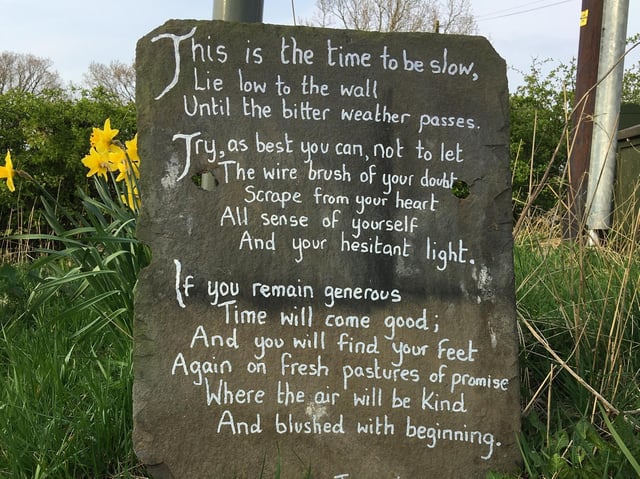 This is the time to be slow,
Lie low to the wall
Until the bitter weather passes.
Try, as best you can, not to let
The wire brush of your doubt
Scrape from your heart
All sense of yourself
And your hesitant light.
If you remain generous
Time will come good;
And you will find your feet
Again on fresh pastures of promise
Where the air will be kind
And blushed with beginning.